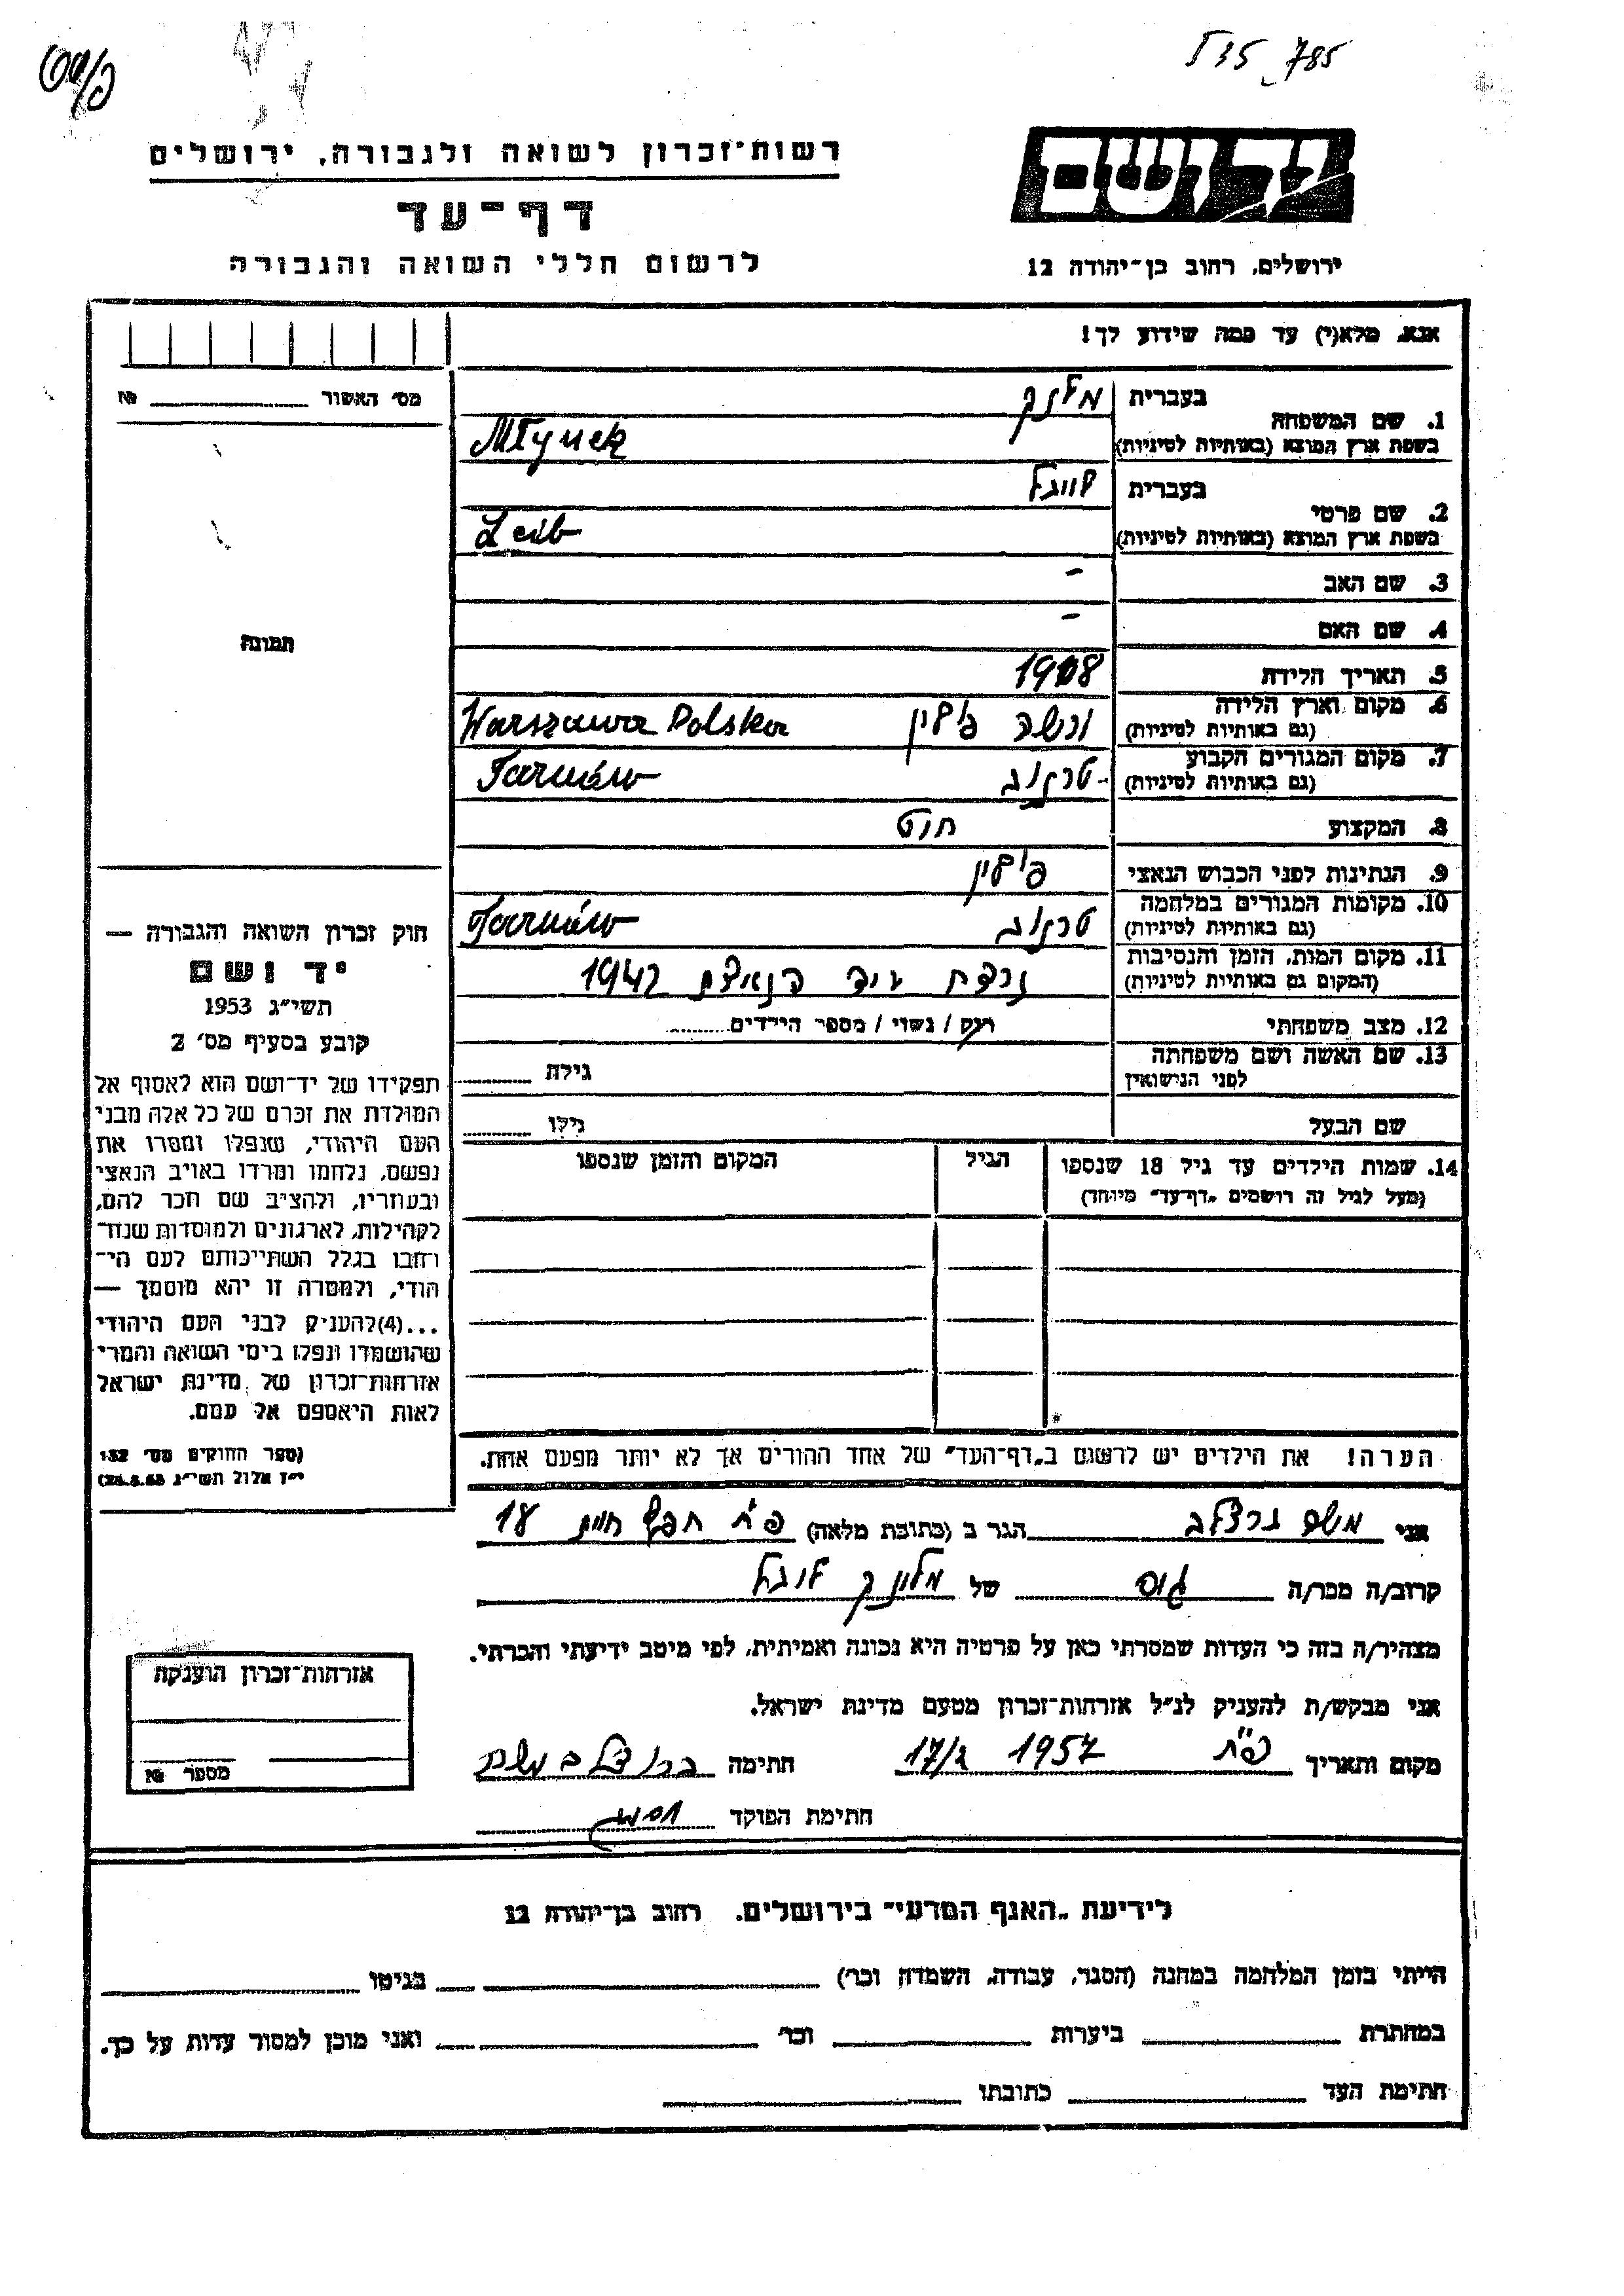 535_785
רשות־זכרון לשואה ולגבורה, ירושלים
יד ושם
דף־עד
לרשום חללי השואה והגבורה
ירושלים, רחוב בן־יהודה 12
אנא, מלא(י) עד כמה שידוע לך!
מס׳ האשור № 
1. שם המשפחה בעברית
בשפת ארץ המוצא (באותיות לטיניות) Młynek
2. שם פרטי בעברית
בשפת ארץ המוצא (באותיות לטיניות) Leib
3. שם האב -
4. שם האם -
5. תאריך הלידה 1908
6. מקום וארץ הלידה ורשה פולין Warszawa Polska
(גם באותיות לטיניות)
7. מקום המגורים הקבוע טרנוב Tarnów
(גם באותיות לטיניות)
8. המקצוע חיט
9. הנתינות לפני הכבוש הנאצי פולין
10. מקומות המגורים במלחמה טרנוב Tarnów
(גם באותיות לטיניות)
11. מקום המות, הזמן והנסיבות נרצח 1942
(המקום גם באותיות לטיניות)
12. מצב משפחתי רוק / נשוי / מספר הילדים
13. שם האשה ושם משפחתה גילה
לפני הנישואין
שם הבעל גילו
14. שמות הילדים עד גיל 18 שנספו הגיל המקום והזמן שנספו
(מעל לגיל זה רושמים „דף־עד״ מיוחד)
הערה! את הילדים יש לרשום ב„דף־העד״ של אחד ההורים אך לא יותר מפעם אחת.
תמונה
חוק זכרון השואה והגבורה —
יד ושם
תשי״ג 1953
קובע בסעיף מס׳ 2
תפקידו של יד־ושם הוא לאסוף אל
המולדת את זכרם של כל אלה מבני
העם היהודי, שנפלו ומסרו את
נפשם, נלחמו ומרדו באויב הנאצי
ובעוזריו, ולהציב שם וזכר להם,
לקהילות, לארגונים ולמוסדות שנח־
רחבו בגלל השתייכותם לעם הי־
הודי, ולמטרה זו יהא מוסמך —
...(4)להעניק לבני העם היהודי
שהושמדו ונפלו בימי השואה והמרי
אזרחות־זכרון של מדינת ישראל
לאות היאספם אל עמם.
(ספר החוקים מס׳ 132
י״ז אלול תשי״ג 28.8.53)
אני משה הגר ב (כתובת מלאה) פ״ת 18
קרוב/ה מכר/ה גיס של
מצהיר/ה בזה כי העדות שמסרתי כאן על פרטיה היא נכונה ואמיתית, לפי מיטב ידיעתי והכרתי.
אני מבקש/ת להעניק לנ״ל אזרחות־זכרון מטעם מדינת ישראל.
מקום ותאריך פ״ת 1957 17/2 חתימה
חתימת הפוקד
אזרחות־זכרון הוענקה
מספר №
לידיעת „האגף המדעי״ בירושלים. רחוב בן־יהודה 12
הייתי בזמן המלחמה במחנה (הסגר, עבודה, השמדה וכו׳) בגיטו
במחתרת ביערות וכו׳ ואני מוכן למסור עדות על כך.
חתימת העד כתובתו